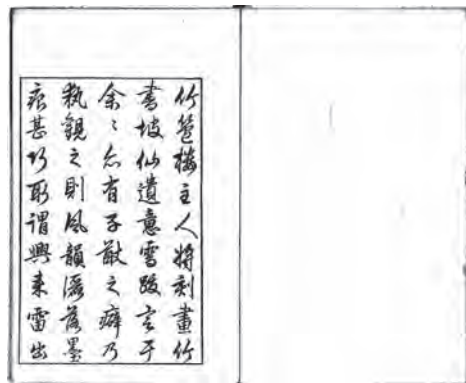 竹苞樓主人將刻畫竹
書坡仙遺意需跋言于
余〻亦有子猷之癖乃
執觀之則風韻灑落墨
痕甚巧所謂興来雷出